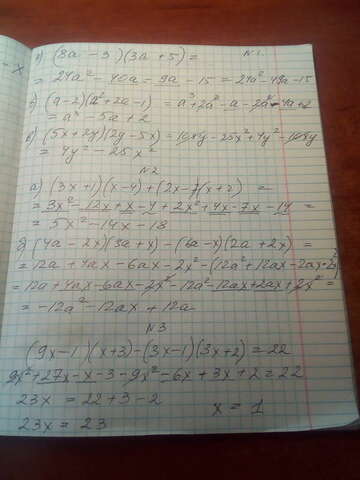 N1.
а) (8a - 3)(3a + 5) =
= 24a² - 40a - 9a - 15 = 24a² - 49a - 15
б) (a-2)(a²+2a-1) = a³+2a²-a-2a²-4a+2
= a³ - 5a + 2
в) (5x+2y)(2y-5x) = 10xy - 25x² + 4y² - 10xy
= 4y² - 25x²
N2
а) (3x+1)(x-4)+(2x-7)(x+2) =
= 3x² - 12x + x - 4 + 2x² + 4x - 7x - 14 =
= 5x² - 14x - 18
б) (4a - 2x)(3a + x) - (6a - x)(2a + 2x) =
= 12a + 4ax - 6ax - 2x² - (12a² + 12ax - 2ax + 2x²)
= 12a + 4ax - 6ax - 2x² - 12a² - 12ax + 2ax + 2x² =
= -12a² - 12ax + 12a
N3
(9x-1)(x+3)-(3x-1)(3x+2)=22
9x²+27x-x-3-9x²-6x+3x+2=22
23x = 22+3-2
23x = 23
x = 1